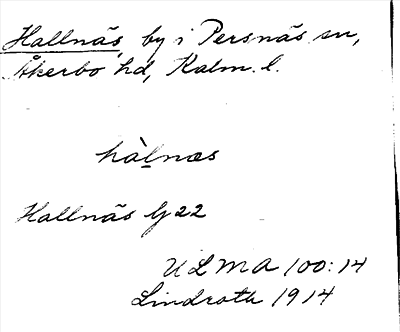 Hallnäs, by i Persnäs sn,
Åkerbo hd, Kalm. l.
hàlnæs
Hallnäs G 22
ULMA 100:14
Lindroth 1914